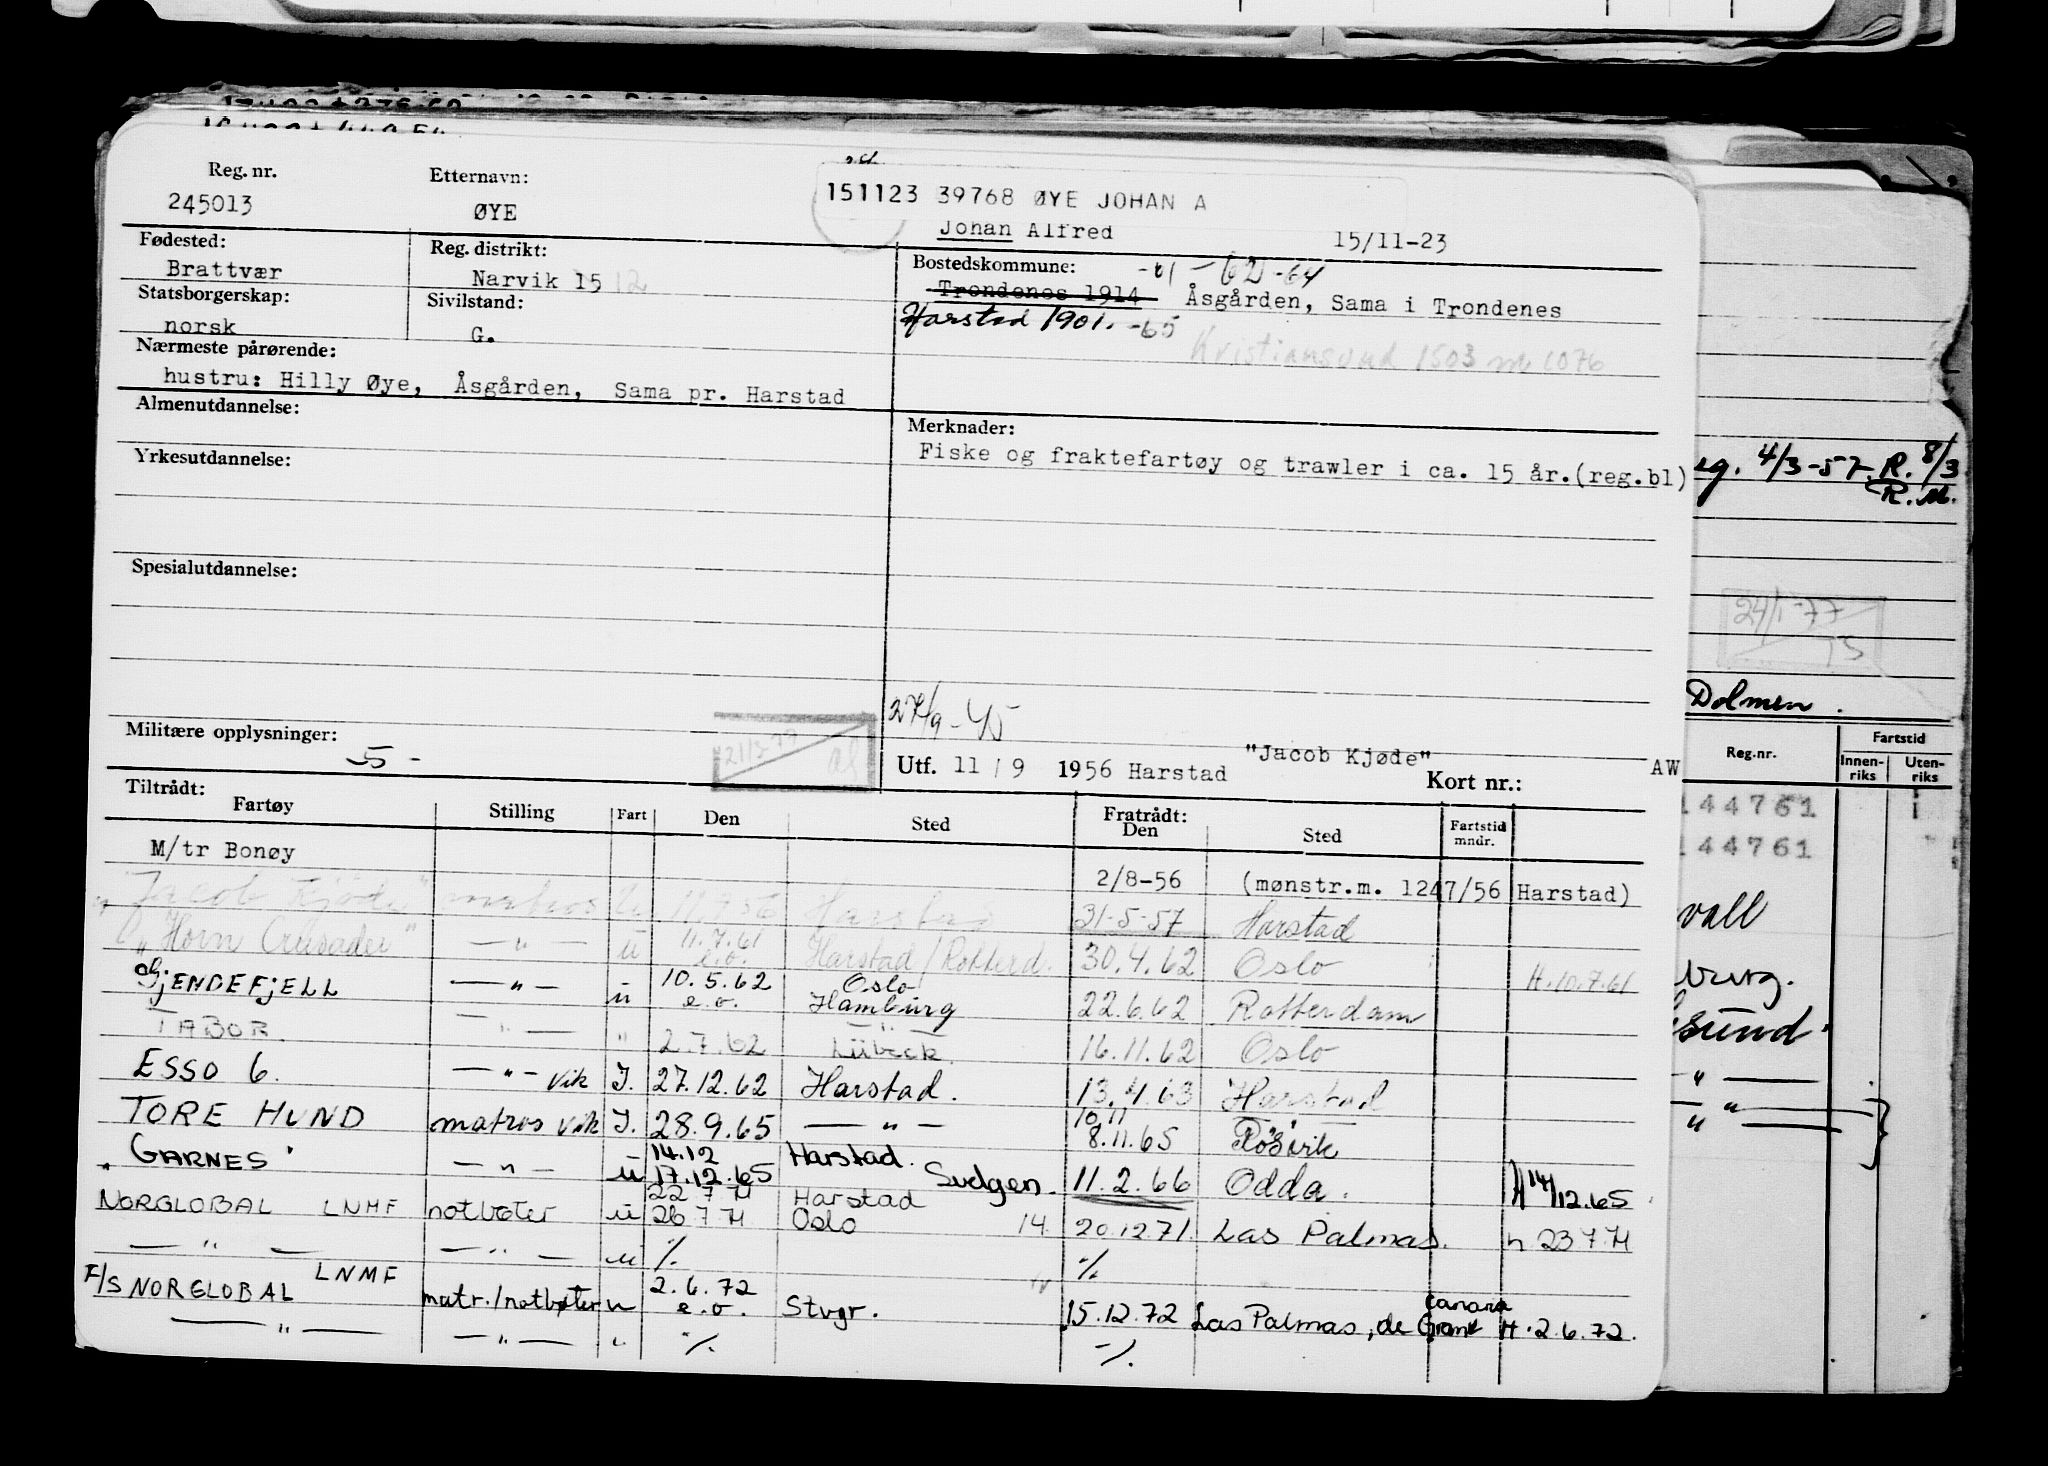 Reg. nr. Etternavn:
151123 39768 ØYE JOHAN A
245013 ØYE Johan Alfred 15/11-23
Fødested: Reg. distrikt: Bostedskommune: -61 - 62 -64
Brattvær Narvik 15 12 Trondenes 1914 Åsgården, Sama i Trondenes
Statsborgerskap: Sivilstand: Harstad 1901. -65
norsk G. Kristiansund 1503 m 1076
Nærmeste pårørende:
hustru: Hilly Øye, Åsgården, Sama pr. Harstad
Almenutdannelse: Merknader:
Fiske og fraktefartøy og trawler i ca. 15 år.(reg.bl)
Yrkesutdannelse:
Spesialutdannelse:
27/9-45
Militære opplysninger:
-5-
Utf. 11/9 1956 Harstad "Jacob Kjøde" Kort nr.: AW
Tiltrådt: Fratrådt:
Fartøy Stilling Fart Den Sted Den Sted Fartstid mndr.
M/tr Bonøy 2/8-56 (mønstr.m. 1247/56 Harstad)
"Jacob Kjøde" matros U 11.9.56 Harstad 31-5-57 Harstad
"Horn Crusader" — " — u 11.7.61 e.o. Harstad/Rotterd. 30.4.62 Oslo H.10.7.61
GJENDEFJELL — " — u 10.5.62 e.o. Oslo Hamburg 22.6.62 Rotterdam
TABOR — " — " 2.7.62 Lübeck. 16.11.62 Oslo
ESSO 6. — " — vik J. 27.12.62 Harstad. 13.4.63 Harstad
TORE HUND matros vik J. 28.9.65 — " — 10.11 8.11.65 Røsvik
"GARNES" — " — u 14.12 17.12.65 Harstad. Svelgen. 11.2.66 Odda. H 14/12.65
NORGLOBAL LNMF notbøter u 22 7 71 26 7 71 Harstad Oslo 14. 20.12.71. Las Palmas. h 23 7 71
— " — — " — u % %
F/S NORGLOBAL LNMF matr./notbøter u 2.6.72 e.o. Stvgr. 15.12.72 Las Palmas, de Gran Canaria H.2.6.72.
— " — — " — " % %
4/3-57. R. 8/3
R.M.
24/1-77
Dolmen.
Reg.nr. Fartstid
Innenriks Utenriks
144761
144761